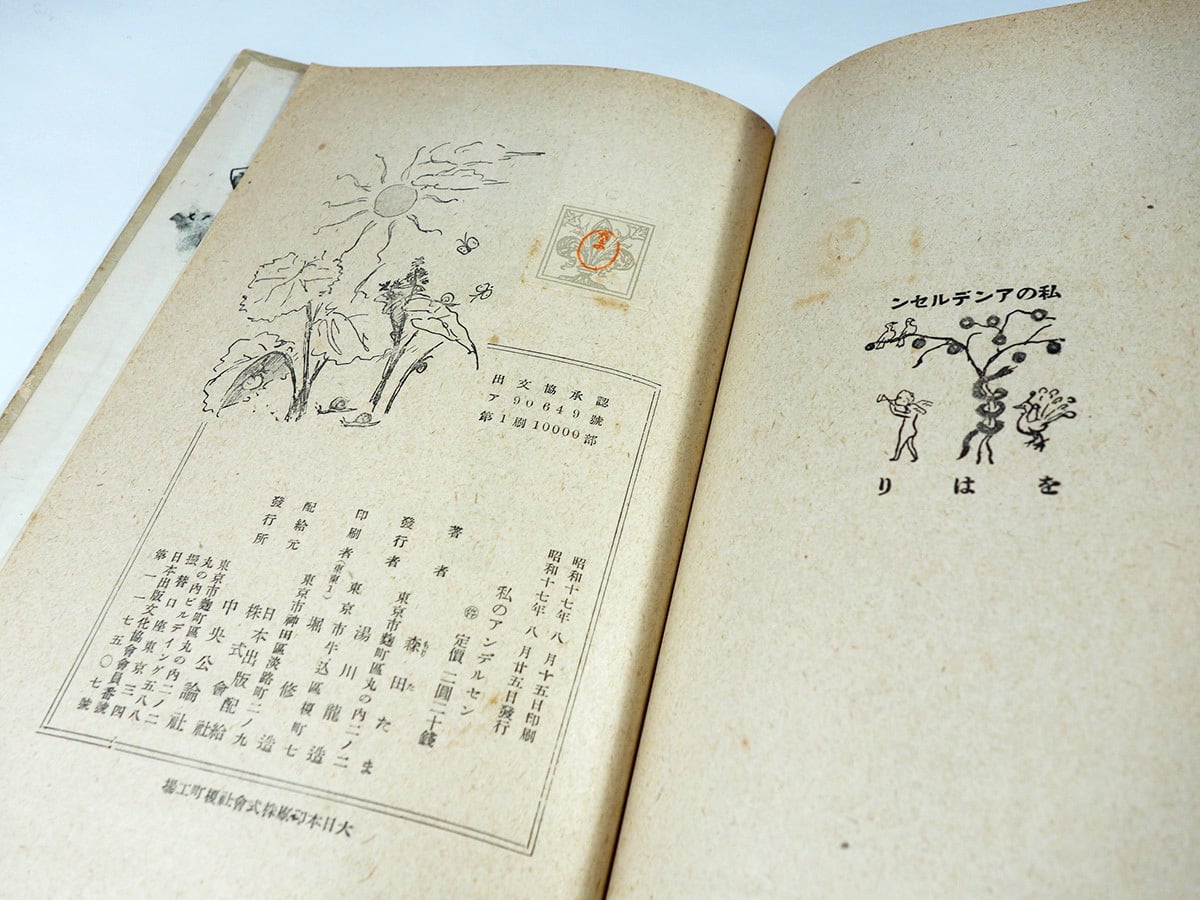 私のアンデルセン
をはり
出文協承認
ア90649號
第1刷10000部
昭和十七年八月十五日印刷
昭和十七年八月廿五日發行
私のアンデルセン
定價二圓二十錢
著者 森田たま
もりた
發行者 東京市麴町區丸の内二ノ二
湯川龍造
印刷者(東東1) 東京市牛込區榎町七
堀修造
配給元 東京市神田區淡路町二ノ九
日本出版配給株式會社
發行所
中央公論社
東京市麴町區丸の内二ノ二
丸の内ビルデイング五八八
振替口座東京三四
日本出版文化協會會員番號
大日本印刷株式會社榎町工場